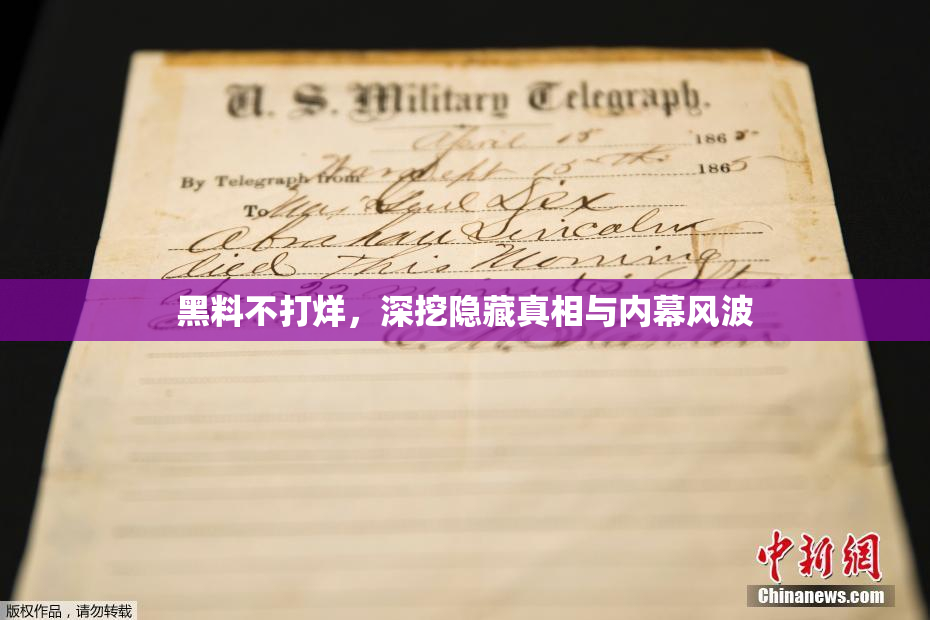 U. S. Military Telegraph.
April 15 1865
By Telegraph from War Dept 15th 1865
To Maj Genl Dix
Abraham Lincoln
died This Morning
at 22 minutes after
黑料不打烊，深挖隐藏真相与内幕风波
E. M. Stanton
中新网
Chinanews.com
版权作品，请勿转载